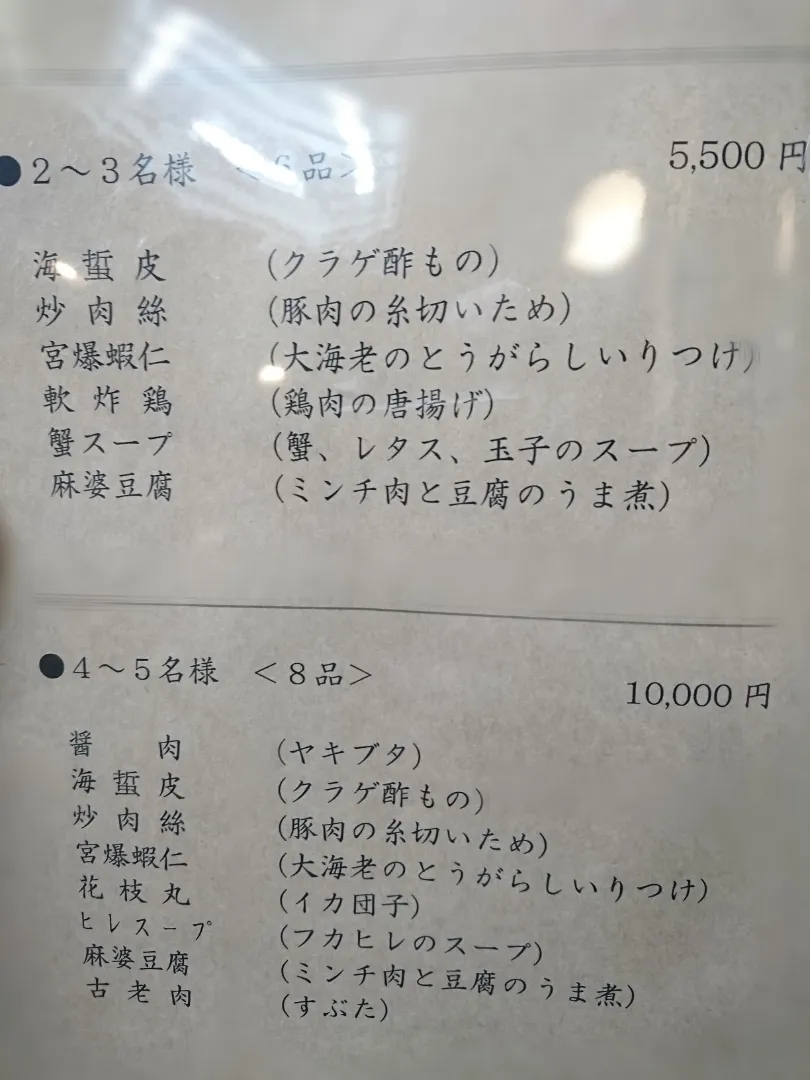 ●2～3名様　＜6品＞　5,500 円
海蜇皮　(クラゲ酢もの)
炒肉絲　(豚肉の糸切いため)
宮爆蝦仁　(大海老のとうがらしいりつけ)
軟炸鶏　(鶏肉の唐揚げ)
蟹スープ　(蟹、レタス、玉子のスープ)
麻婆豆腐　(ミンチ肉と豆腐のうま煮)
●4～5名様　＜8品＞　10,000 円
醤肉　(ヤキブタ)
海蜇皮　(クラゲ酢もの)
炒肉絲　(豚肉の糸切いため)
宮爆蝦仁　(大海老のとうがらしいりつけ)
花枝丸　(イカ団子)
ヒレスープ　(フカヒレのスープ)
麻婆豆腐　(ミンチ肉と豆腐のうま煮)
古老肉　(すぶた)